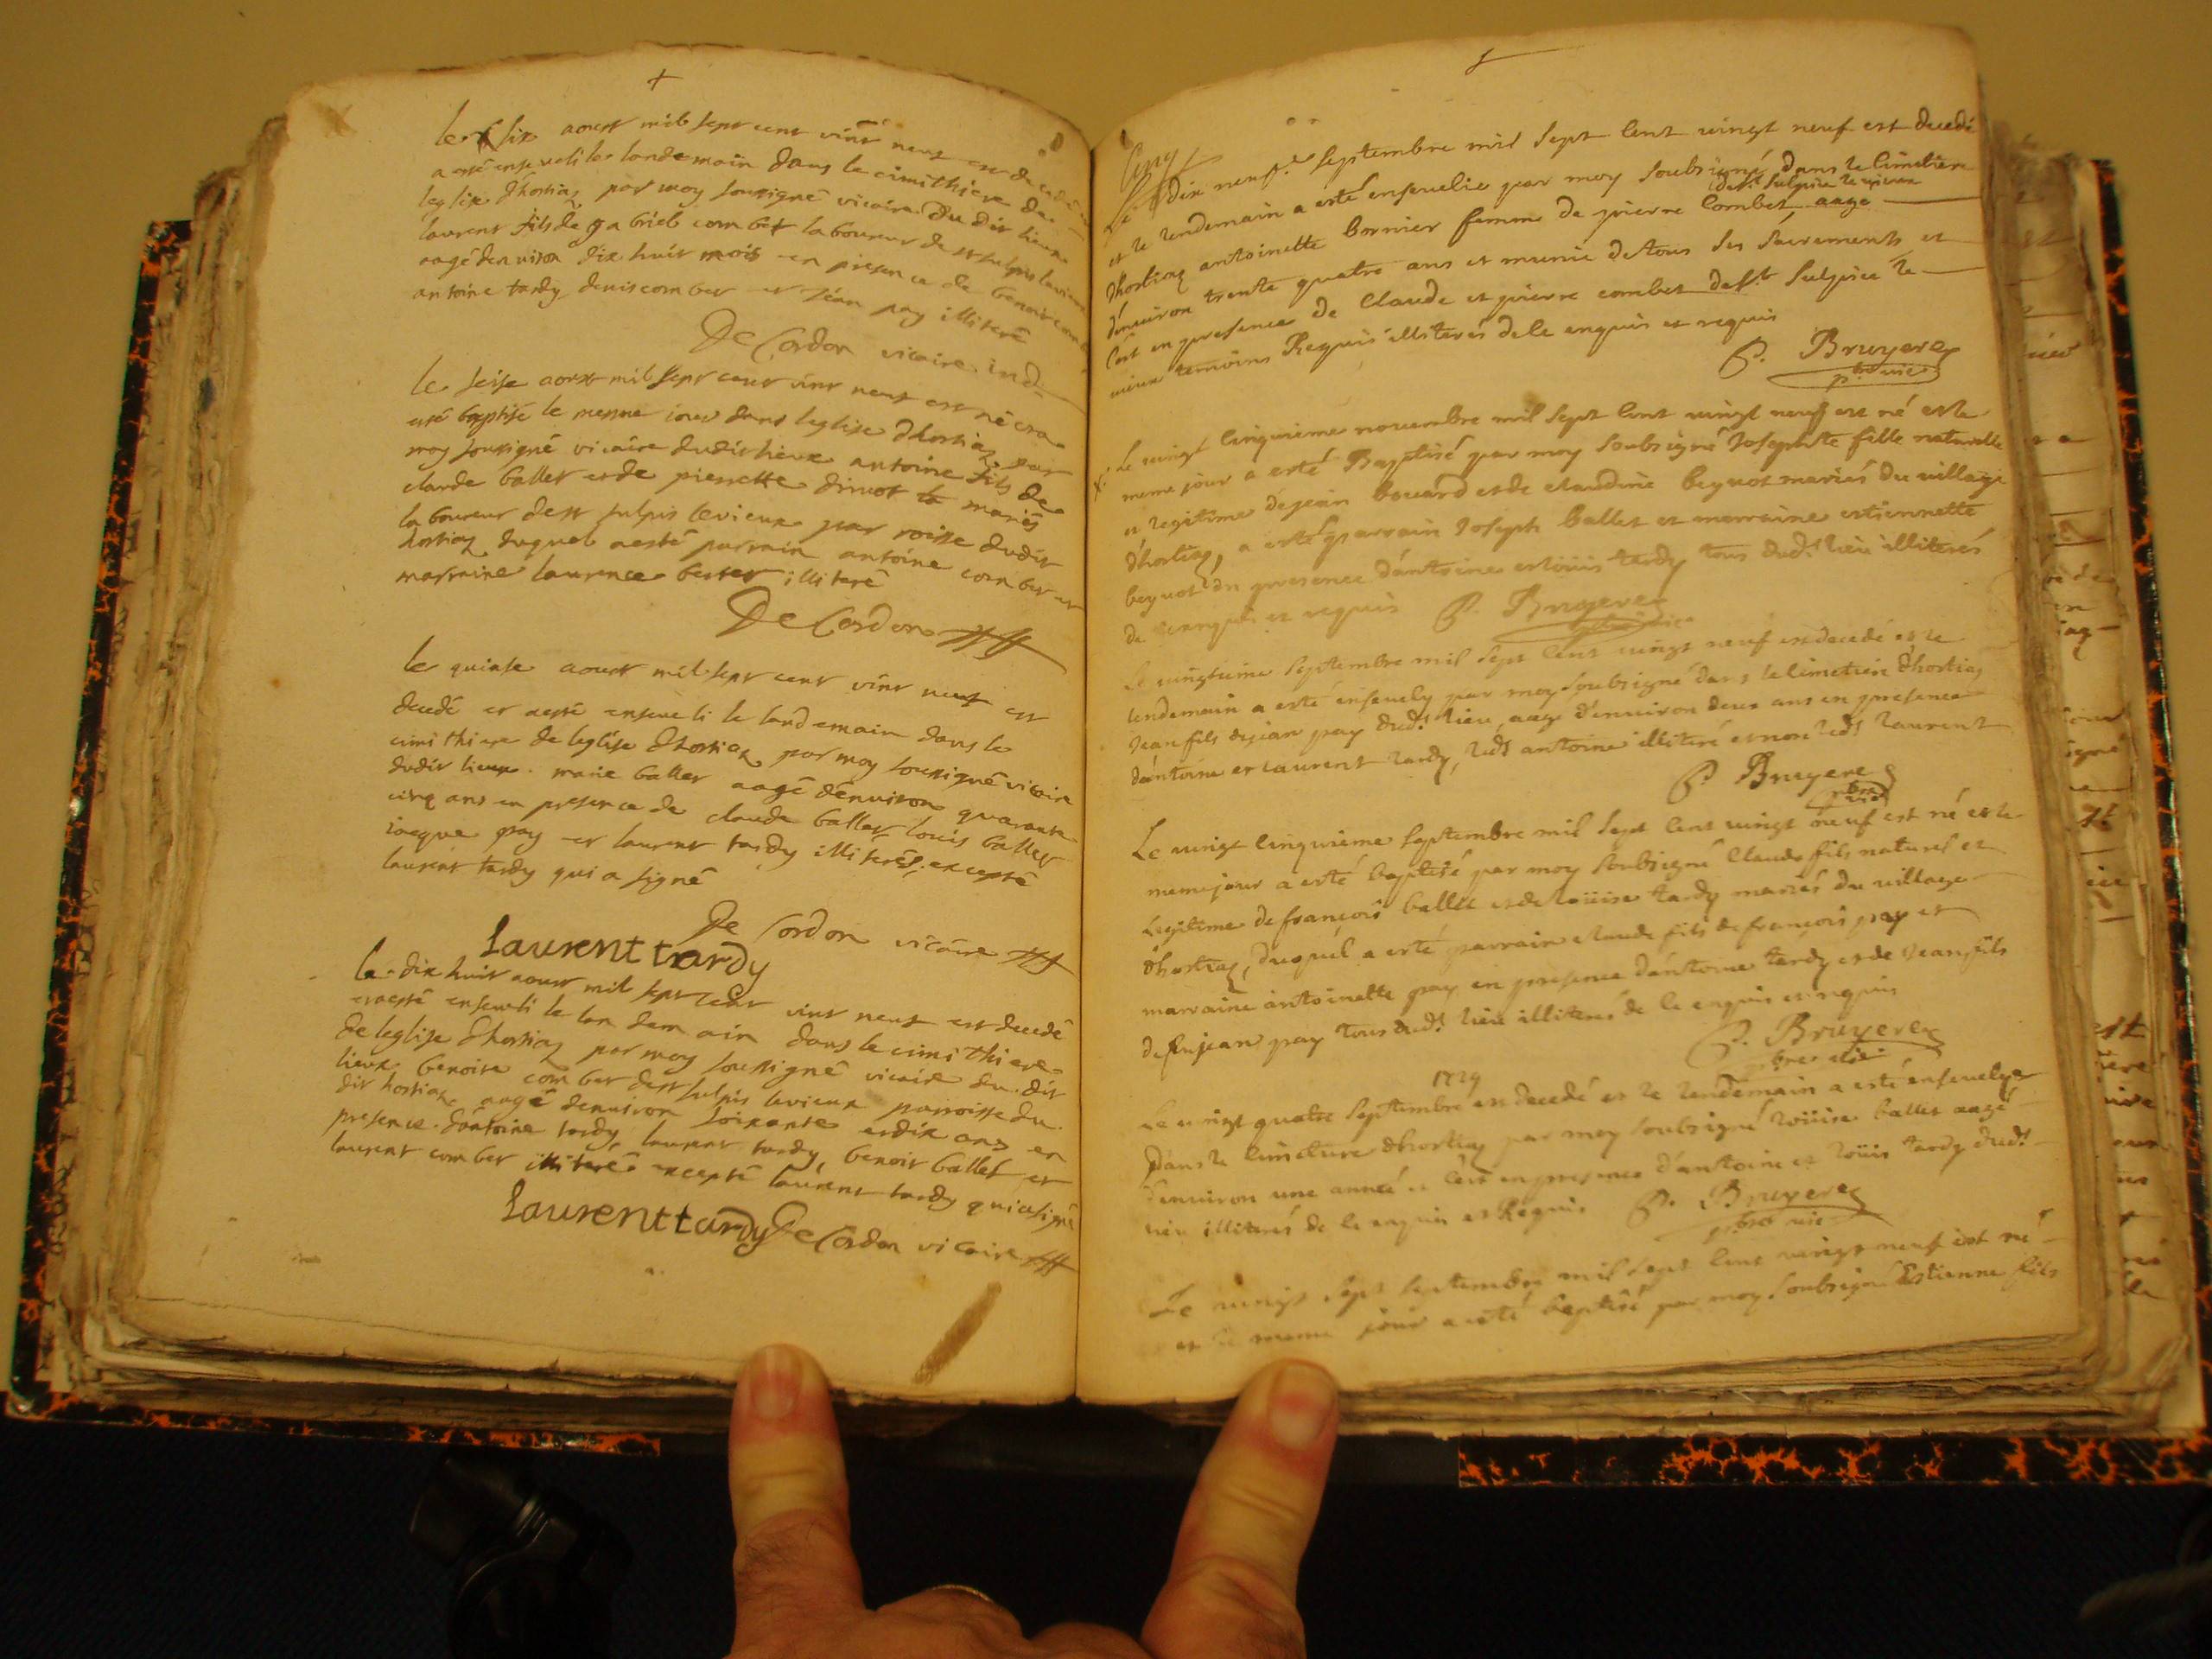 le six aoust mil sept cent vint neuf est decedé et
a esté enseveli le landemain dans le cimithiere de
leglise dhostiaz par moy sousigné vicaire du dit lieux
laurent fils de gabrieb combet laboureur de st sulpis levieux
aagé denviron dix huit mois en presence de benoit combet
antoine tardy denis combet et jéan pay illiteré
De Cordon vicaire ind
le seise aoust mil sept cent vint neuf est né et a
esté baptisé le mesme iour dans leglise dhostiaz par
moy sousigné vicaire dudit lieux antoine fils de
claude ballet et de pierrette mariés
laboureur de st sulpis levieux parroisse dudit
hostiaz duquel aesté parrain antoine combet et
marraine laurence illiteré
De Cordon
le quinse aoust mil sept cent vint neuf est
decedé et aesté enseveli le landemain dans le
cimithiere de leglise dhostiaz par moy sousigné vicaire
dudit lieux marie ballet aagé denviron quarante
cinq ans en presence de claude ballet louis ballet
iacque pay et laurent tardy illiterés excepté
laurent tardy qui a signé
De Cordon vicaire
laurent tardy
le dix huit aoust mil sept cent vint neuf est decedé
et aesté enseveli le landemain dans le cimithiere
de leglise dhostiaz par moy sousigné vicaire du dit
lieux benoite combet de st sulpis levieux parroisse du
dit hostiaz aagé denviron soixante et dix ans en
presence dantoine tardy laurent tardy benoit ballet et
laurent combet illiteré excepté laurent tardy qui a signé
laurent tardy De Cordon vicaire
Le dix neuf.e septembre mil sept cent vingt neuf est decedé
et le lendemain a esté ensevelie par moy soubsigné dans le cimetiere
de st. sulpice le vieux
dhostiaz antoinette bornier femme de pierre Combet, aage
d'environ trente quatre ans et munie de tous ses sacrements et
c'est en presence de Claude et pierre combet de st. sulpice le
vieux temoins Requis illiterés de ce enquis et requis
P. Bruyere
p.bre vic
Le vingt cinquieme novembre mil sept cent vingt neuf est né et le
meme jour a esté Baptisé par moy soubsigné Josephte fille naturelle
et legitime de jean bouard et de claudine beynot mariés du village
d'hostiaz, a esté parrain Joseph ballet et marraine estiennette
beynot en presence d'antoine et loüis tardy tous dud.t lieu illiterés
de ce enquis et requis P. Bruyere
Le vingtieme septembre mil sept cent vingt neuf est decedé et le
lendemain a esté ensevely par moy soubsigné dans le cimetiere d'hostiaz
Jean fils de jean pay dud.t lieu, aagé d'environ deux ans en presence
d'antoine et laurent tardy, led.t antoine illiteré et non led.t laurent
P. Bruyere
p.bre vic
Le vingt cinquieme septembre mil sept cent vingt neuf est né et le
meme jour a esté baptisé par moy soubsigné Claude fils naturel et
Legitime de françois ballet et de loüise tardy mariés du village
d'hostiaz, duquel a esté parrain claude fils de françois pay et
marraine antoinette pay en presence d'antoine tardy et de Jean fils
de jean pay tous dud.t lieu illiterés de ce enquis et requis
P. Bruyere
p.bre vic
1729
Le vingt quatre septembre est decedé et le lendemain a esté ensevelye
dans le cimetiere d'hostiaz par moy soubsigné loüise ballet aagé
d'environ une année et c'est en presence d'antoine et loüis tardy dud.t
lieu illiterés de ce enquis et Requis P. Bruyere
p.bre vic
Le vingt sept septembre mil sept cent vingt neuf est né
et le meme jour a esté baptisé par moy soubsigné Estienne fils